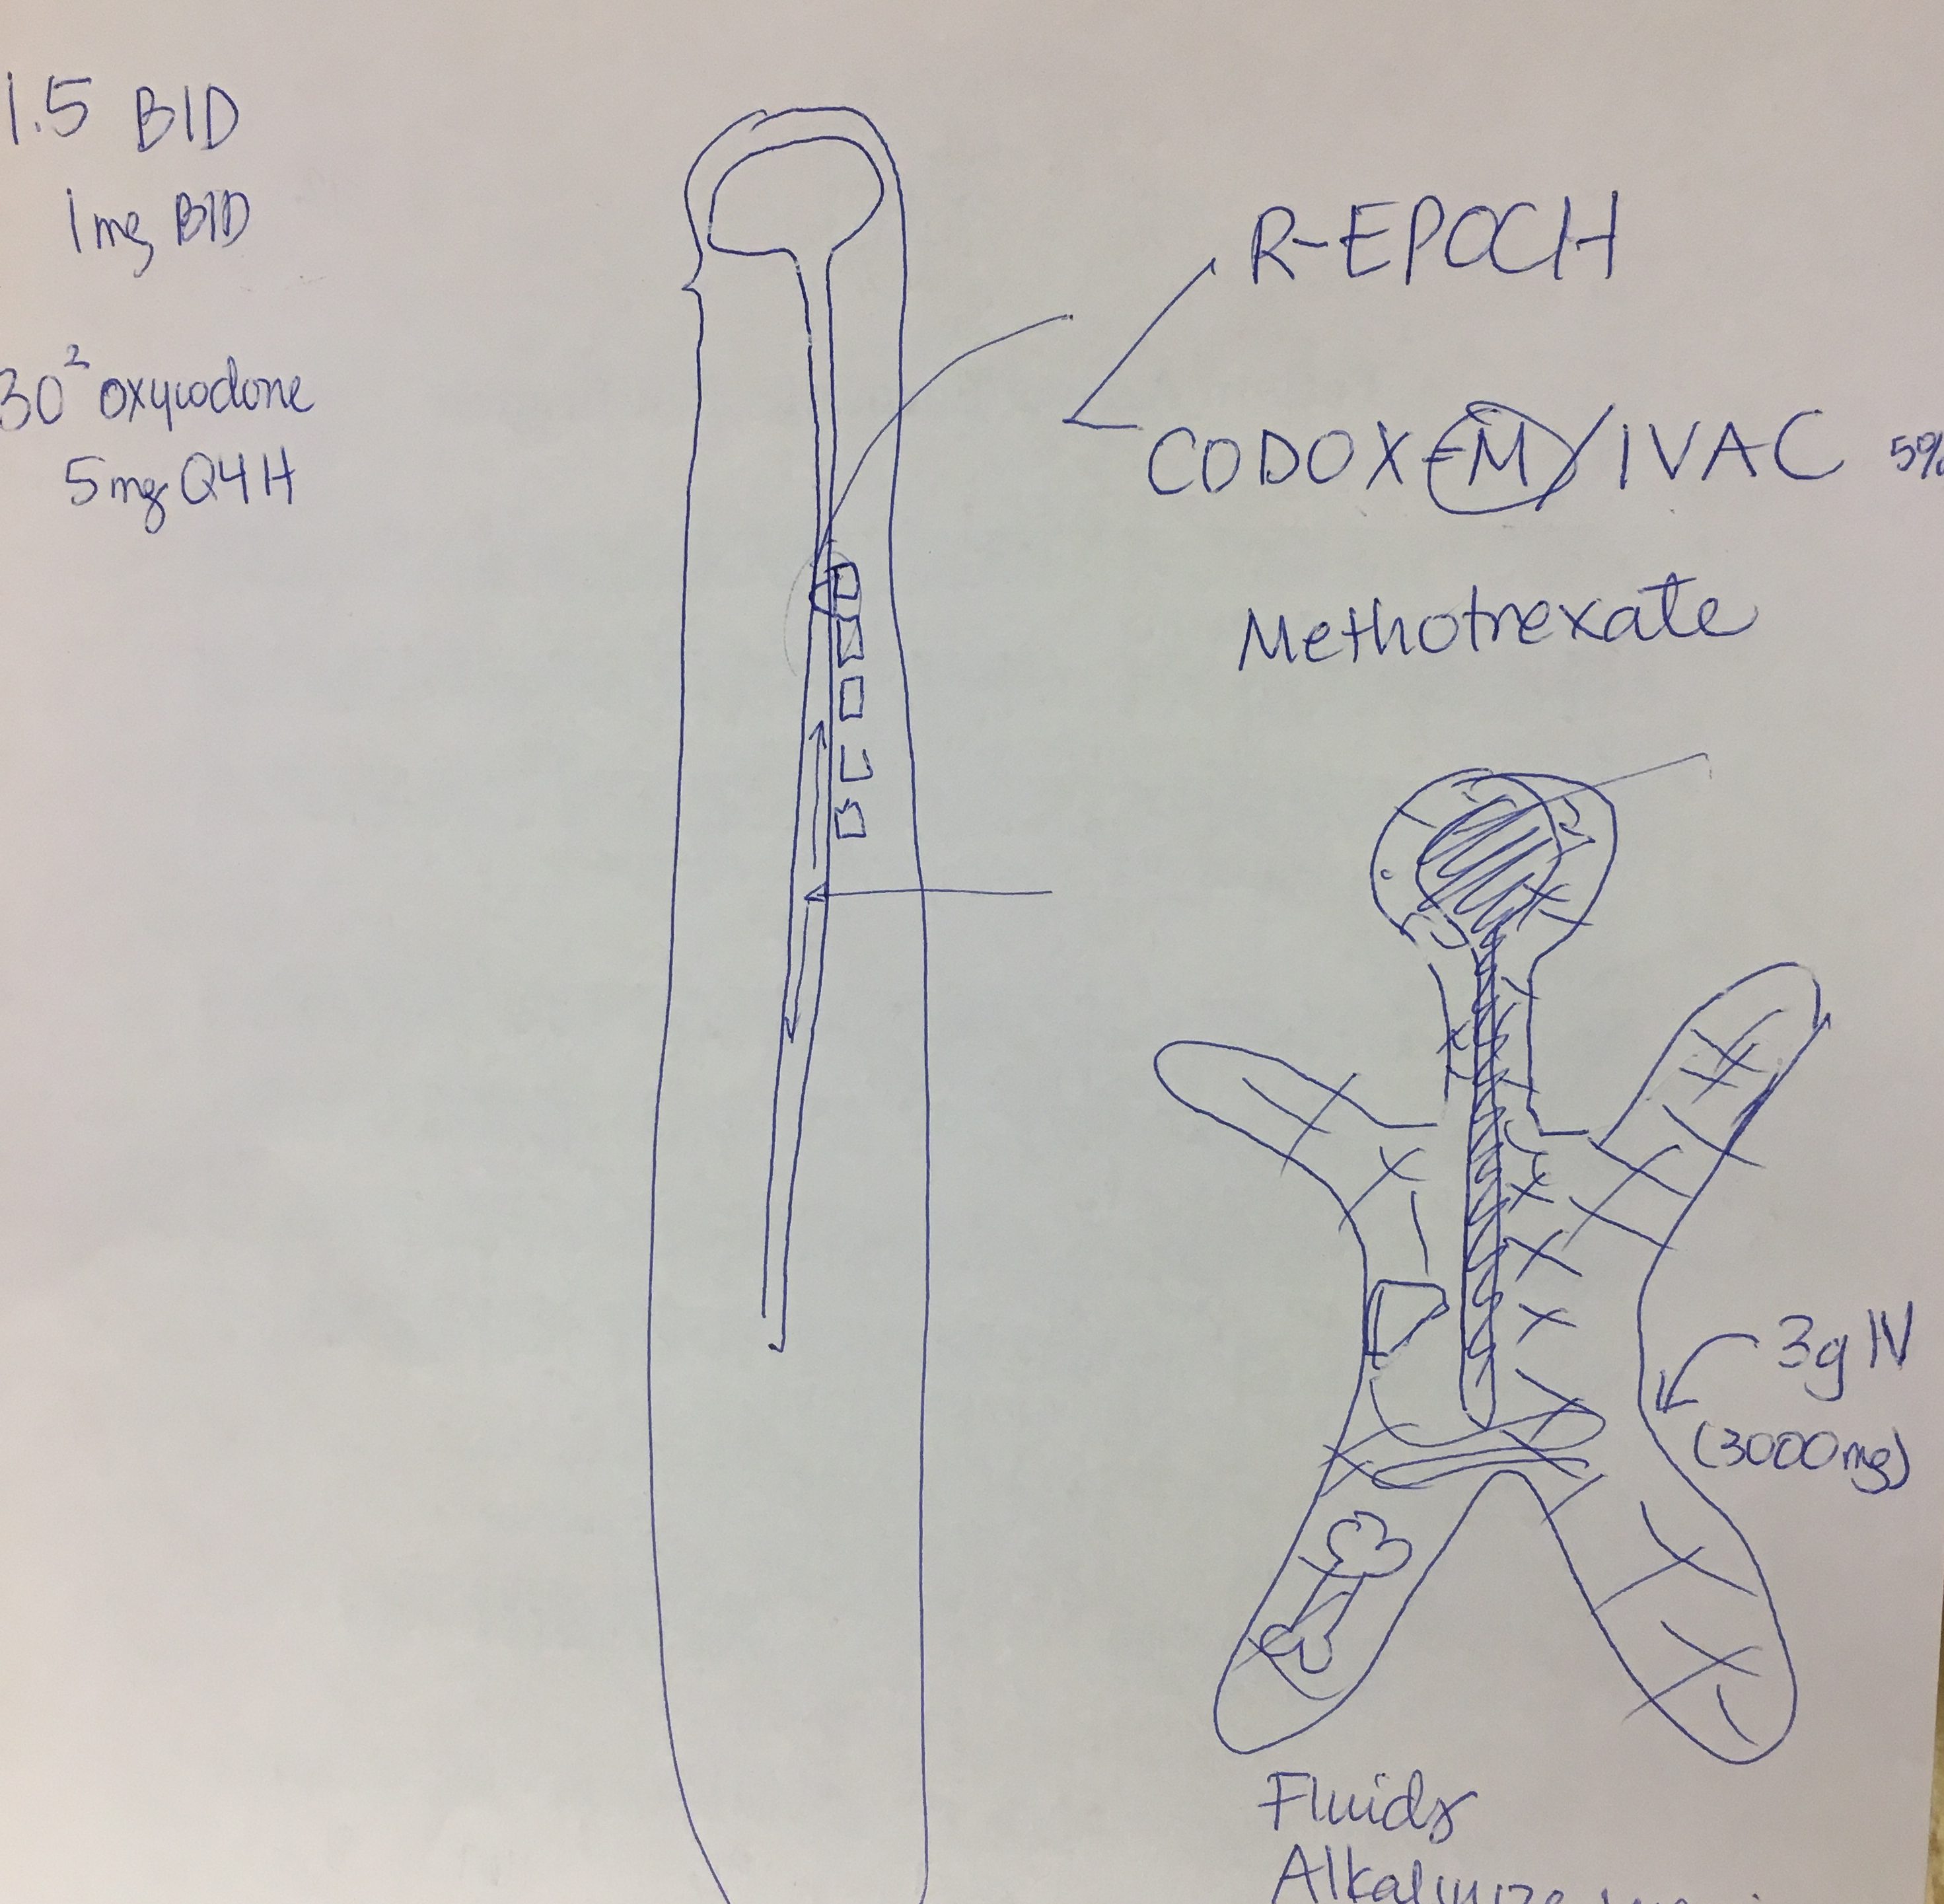 1.5 BID
1mg BID
30² oxycodone
5mg Q4H
R-EPOCH
CODOX-M/IVAC 5%
Methotrexate
3g IV
(3000mg)
Fluids
Alkalinize